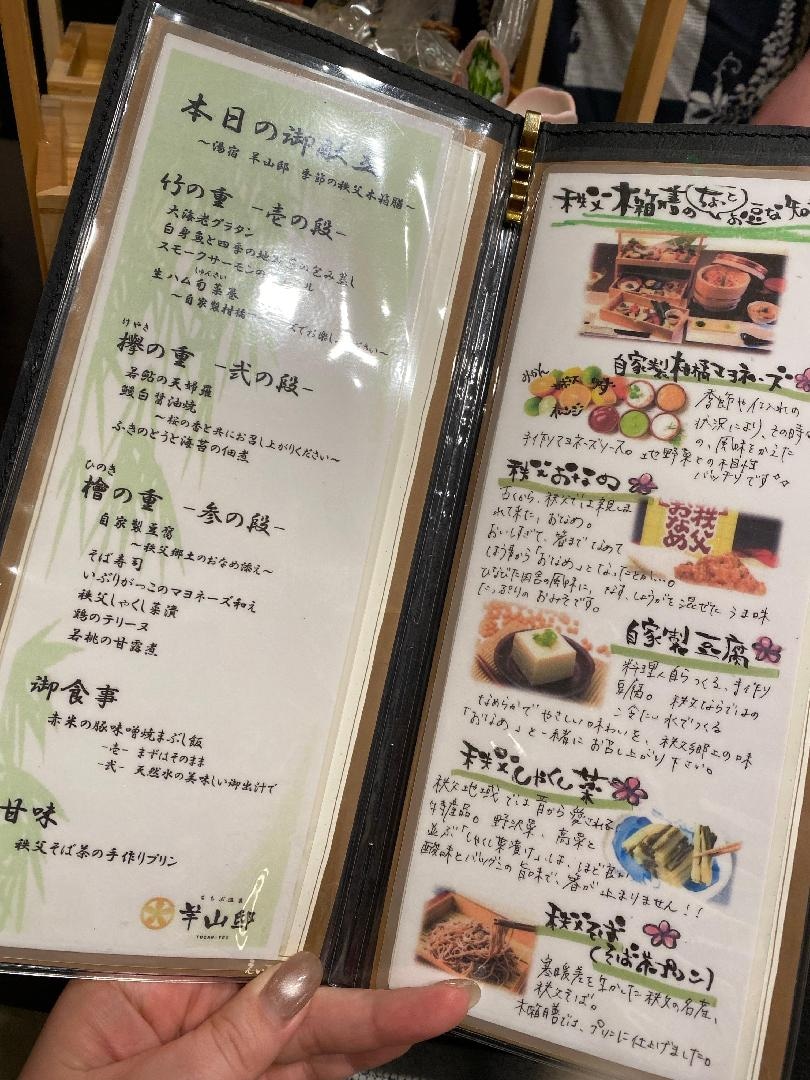 本日の御献立
～湯宿 羊山邸 季節の秩父木箱膳～
竹の重 -壱の段-
大海老グラタン
白身魚と四季の地 の包み蒸し
スモークサーモンの ル
生ハム旬菜巻
しゅんさい
～自家製柑橘 ズでお楽し ださい～
けやき
欅の重 -弐の段-
若鮎の天婦羅
鰻白醤油焼
～桜の香と共にお召し上がりください～
ふきのとうと海苔の佃煮
ひのき
檜の重 -参の段-
自家製豆腐
～秩父郷土のおなめ添え～
そば寿司
いぶりがっこのマヨネーズ和え
秩父しゃくし菜漬
鶏のテリーヌ
若桃の甘露煮
御食事
赤米の豚味噌焼まぶし飯
-壱- まずはそのまま
-弐- 天然水の美味しい御出汁で
甘味
秩父そば茶の手作りプリン
ちちぶ温泉
羊山邸
秩父木箱膳のちょっとお豆な知
自家製柑橘マヨネーズ
みかん
ゆず
オレンジ
季節や仕入れの
状況により、その時々
の、風味をかえた
手作りマヨネーズソース。地野菜との相性
バッチリです
秩父おなめ
古くから、秩父では親しま
れて来た、おなめ。
おいしすぎて、箸までなめて
しまう事から「おなめ」となったとか…。
ひなびた田舎の風味に、なす、しょうがを混ぜた うま味
たっぷりのおみそです。
秩父
おなめ
自家製豆腐
料理人自らつくる、手作り
豆腐。 秩父ならではの
冷たい水でつくる
なめらかでやさしい味わいを、秩父郷土の味
「おなめ」と一緒にお召し上がり下さい。
秩父しゃくし菜
秩父地域では昔から愛される
特産品。野沢菜、高菜と
並ぶ「しゃくし菜漬け」は、ほど良い
酸味とバツグンの旨味で、箸が止まりません！！
秩父そば
(そば茶プリン)
寒暖差を生かした秩父の名産、
秩父そば。
木箱膳では、プリンに仕上げました。